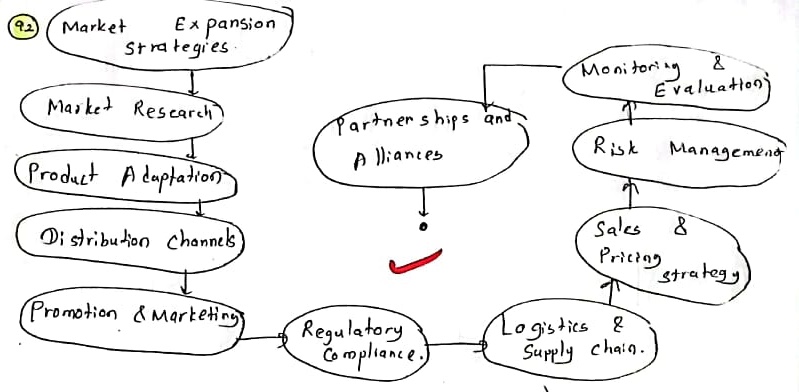 92
Market Expansion
Strategies.
Market Research
Product Adaptation
Distribution Channels
Promotion & Marketing
Regulatory
Compliance.
Logistics &
Supply Chain.
Sales &
Pricing
strategy
Risk Management
Monitoring &
Evaluation
Partnerships and
Alliances